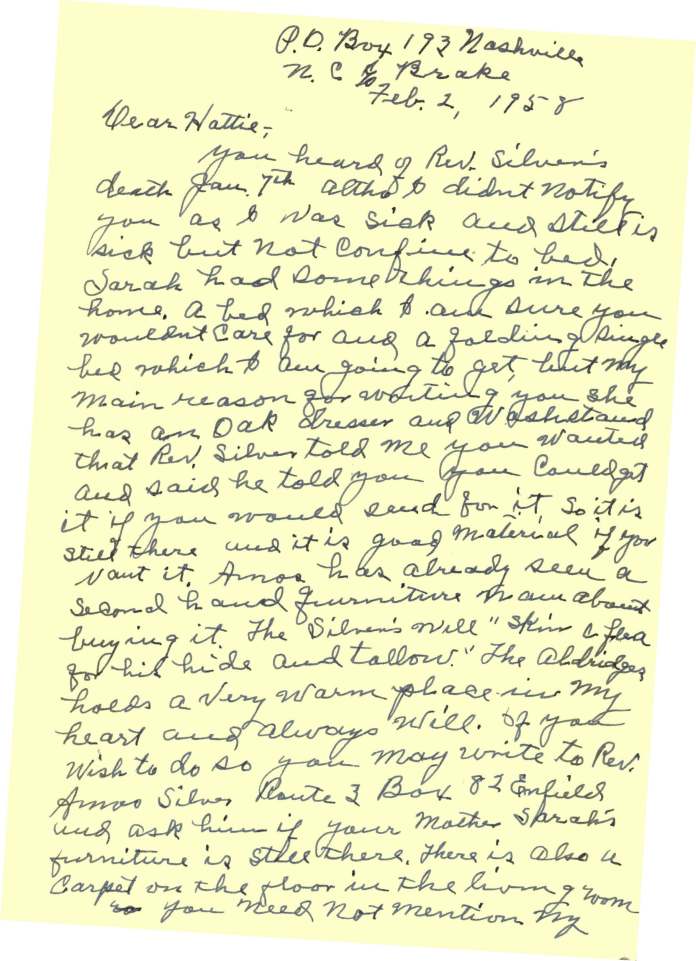 P.O. Box 193 Nashville
N. C c/o Brake
Feb. 2, 1958
Dear Hattie,-
You heard of Rev. Silver's
death Jan. 7th altho I didnt Notify
you as I was sick and still is
sick but not confine to bed.
Sarah had some things in the
home. A bed which I am sure you
wouldnt care for and a folding single
bed which I am going to get, but my
main reason for writing you she
has an Oak dresser and Washstand
that Rev. Silver told me you wanted
and said he told you you could get
it if you would send for it. So it is
still there and it is good material if you
want it. Amos has already seen a
second hand furniture man about
buying it. The Silver's will "skin a flea
for his hide and tallow." The Aldridges
holds a very warm place in my
heart and always will. If you
wish to do so you may write to Rev.
Amos Silver Route 3 Box 82 Enfield
and ask him if your Mother Sarah's
furniture is still there. There is also a
carpet on the floor in the living room
you need not mention my